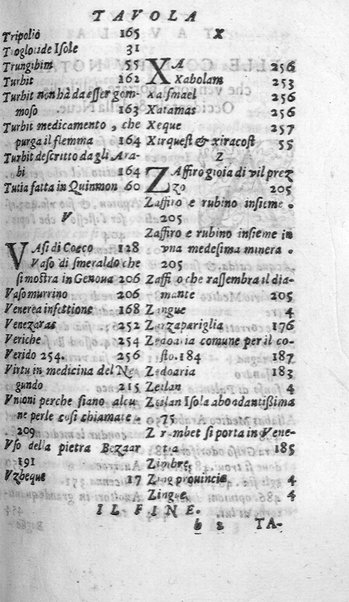 TAVOLA
Tripolio 165
Troglo de Isole 31
Trungibim 55
Turbit 162
Turbit non hà da esser gom-
moso 163
Turbit medicamento, che
purga il flemma 164
Turbit descritto da gli Ara-
bi 164
Tutia fatta in Quinmon 60
V
VAsi di Cocco 128
Vaso di smeraldo che
si mostra in Genoua 206
Vaso murrino 206
Venerea infettione 168
Venezaras 252
Veriche 254
Verido 254. 256
Virtu in medicina del Ne-
gundo 215
Vnioni perche siano alcu-
ne perle cosi chiamate.
209
Vso della pietra Bezaar
191
Vzbeque 17
X
XA 256
Xabolam 253
Xasmael 256
Xatamas 256
Xeque 257
Xirquest & xiracost 55
Z
ZAffiro gioia di vil prez
zo 205
Zaffiro e rubino insieme
205
Zaffiro e rubino insieme in
vna medesima minera
205
Zaffiro che rassembra il dia-
mante 205
Zingue 4
Zarzapariglia 176
Zedoaria comune per il co-
sto. 184 187
Zedoaria 183
Zeilan 4
Zeilan Isola abondantissima
75
Zerumbet si porta in Vene-
tia 185
Zimbre
Zing prouincia 4
Zingue. 4
IL FINE.
b 2 TA-